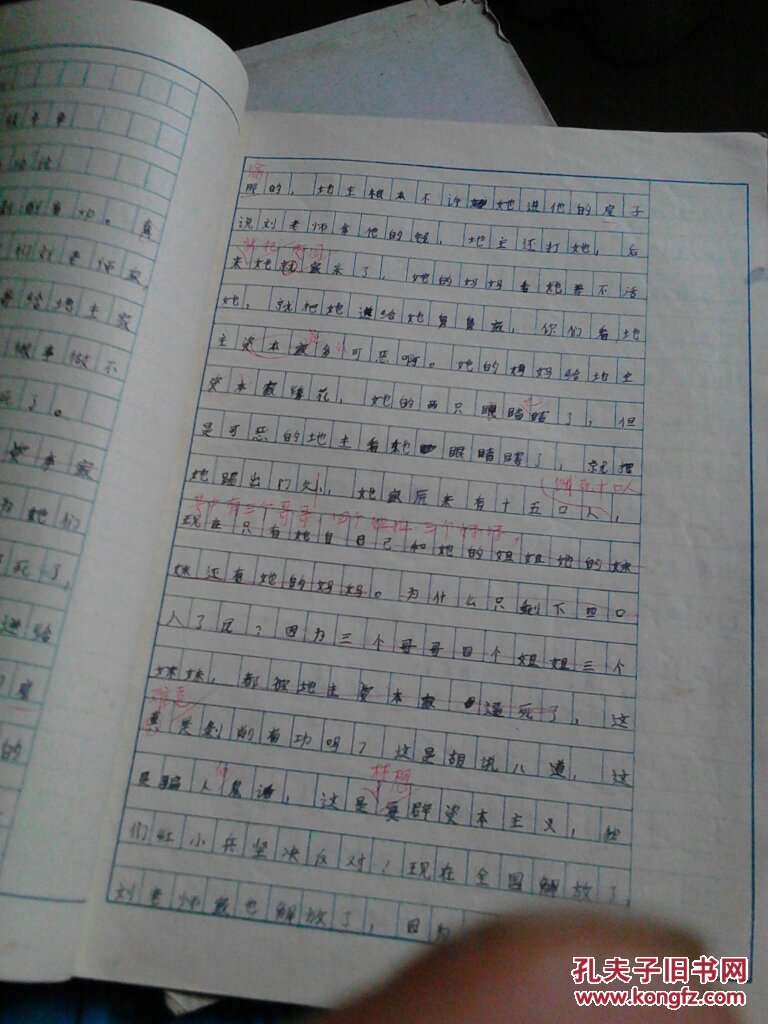 做事
剥削有功。真
们刘老师家
给地主家
做事做不
死了。
资本家
为她们
死了，
逼给
的
那的，地主根本不许她进他的房子
说刘老师拿他的钱，地主还打她，后
来她就家来了，她的妈妈看她养不活
她，就把她送给她舅舅家，你们看地
主资本家多可恶啊。她的妈妈给地主
资本家绣花，她的两只眼睛瞎了，但
是可恶的地主看她眼睛瞎了，就把
她踢出门外，她家原来有十五口人，
饿死十口人
其中有三个哥哥，四个姐姐，三个妹妹，
现在只有她自己和她的姐姐她的妹
妹还有她的妈妈。为什么只剩下四口
人了呢？因为三个哥哥四个姐姐三个
妹妹，都被地主资本家逼死了，这
难道
真是剥削有功吗？这是胡说八道，这
是骗人鬼话，这是要
梦想
资本主义，我
们红小兵坚决反对！现在全国解放了，
刘老师家也解放了，因为
孔夫子旧书网
www.kongfz.com